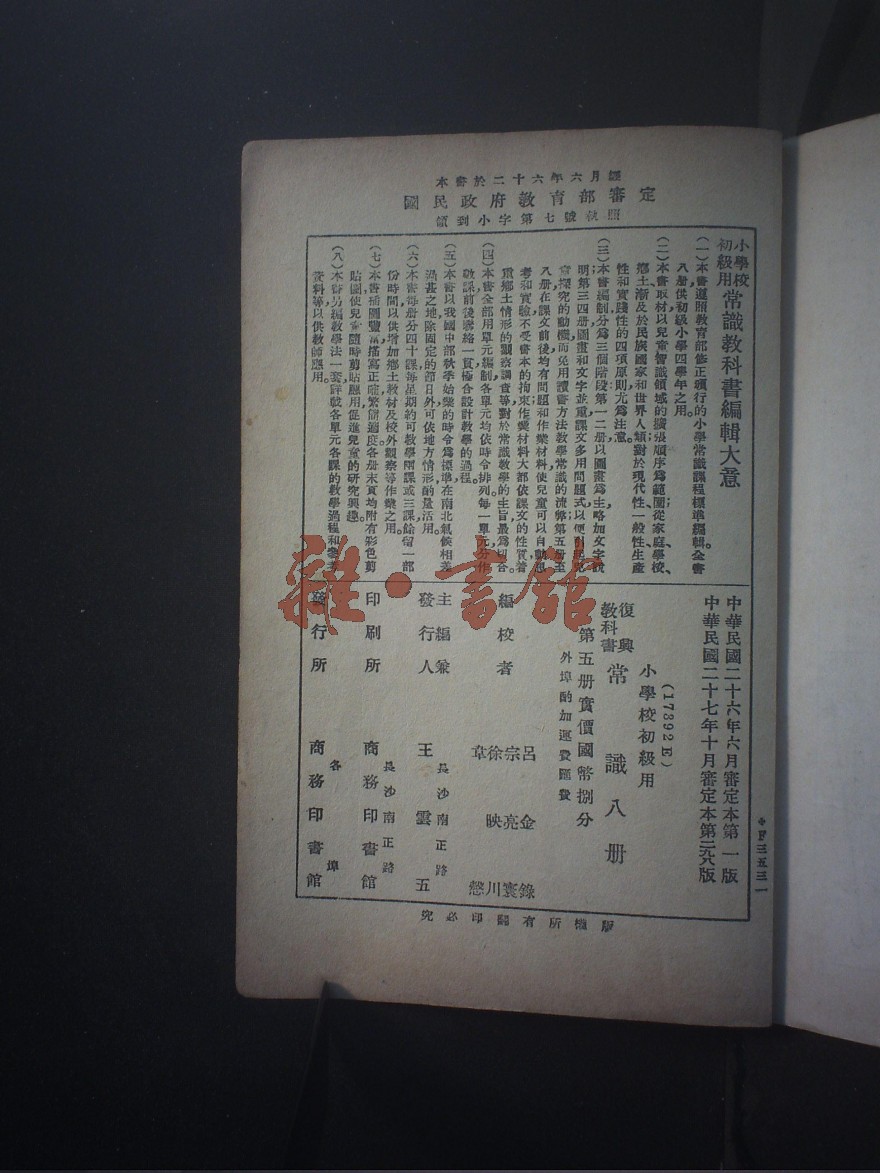 本書於二十六年六月經
國民政府教育部審定
領到小字第七號執照
小學校初級用常識教科書編輯大意
(一)本書遵照教育部修正頒行的小學常識課程標準編輯全書
八册供初級小學四學年之用。
(二)本書取材以兒童智識領域的擴張順序為範圍從家庭學校、
鄉土漸及於民族國家和世界人類對於現代性一般性生產
性和實踐性的四項原則尤為注意。
(三)本書編制分為三個階段第一二册以圖畫為主略加文字說
明第三四册圖畫和文字並重課文多用問題式以便引起兒
童探究的動機而免用讀書方法教學常識的流弊第五册至
八册在課文前後均有問題和作業材料使兒童可以自動思
考和實驗不受書本的拘束作業材料大都依課文的性質着
重鄉土情形的觀察調查等對於常識教學的主旨最為切合。
(四)本書全部用單元編制各單元均依時令排列每一單元分作
數課前後聯絡一貫極合設計教學的過程。
(五)本書以我國中部秋季始業的時令為標準在南北氣候相差
過甚之地除固定的節日外可依地方情形酌量活用。
(六)本書每册分四十課每星期約可教學兩課或三課餘留一部
份時間以供增加鄉土教材及校外觀察等作業之用。
(七)本書插圖豐富描寫正確繁簡適度各册末頁均附有彩色剪
貼圖使兒童隨時剪貼應用促進兒童的研究興趣。
(八)本書另編教學法一套詳載各單元各課的教學過程和參考
資料等以供教師應用。
中華民國二十六年六月審定本第一版
中華民國二十七年十月審定本第版
(17392E)
小學校初級用
復興教科書 常識八册
第五册實價國幣捌分
外埠酌加運費匯費
編校者 呂金錄
宗亮寰
徐映川
韋 慤
主編兼發行人 王雲五
長沙南正路
印刷所 商務印書館
長沙南正路
發行所 商務印書館
各埠
版權所有翻印必究
*F三五三一
雜·書館